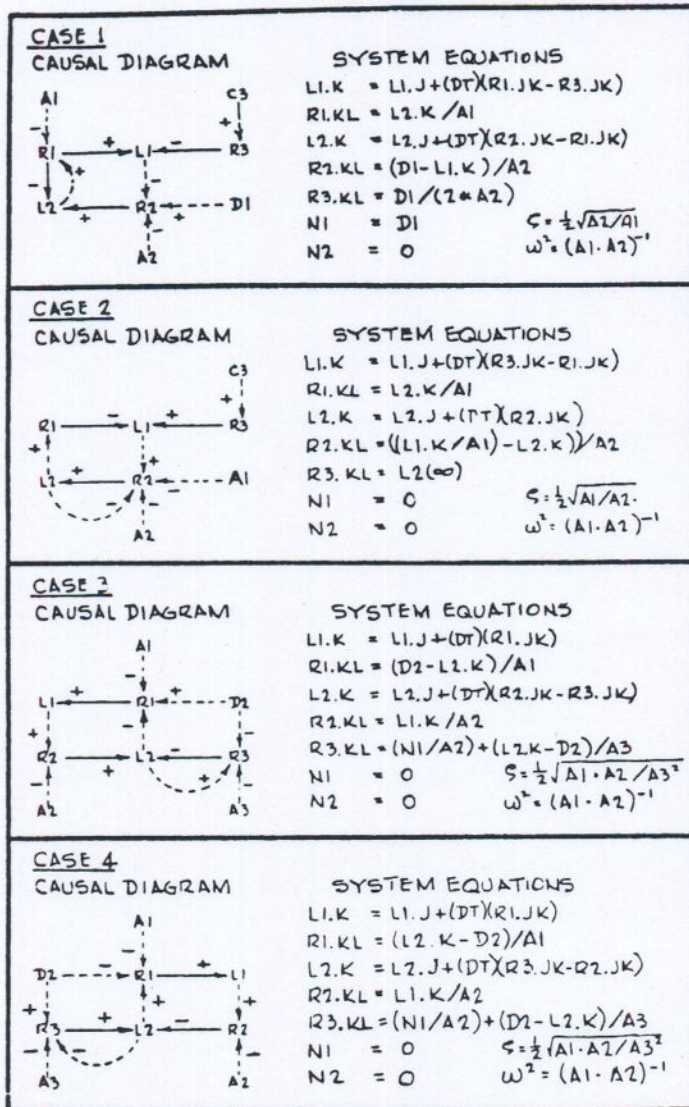 CASE 1
CAUSAL DIAGRAM
A1
C3
-
+
R1
+
L1
-
R3
-
+
-
L2
+
R2
+
D1
-
A2
SYSTEM EQUATIONS
L1.K = L1.J+(DT)(R1.JK-R3.JK)
R1.KL = L2.K/A1
L2.K = L2.J+(DT)(R2.JK-R1.JK)
R2.KL = (D1-L1.K)/A2
R3.KL = D1/(2*A2)
N1 = D1 ζ=½√A2/A1
N2 = 0 ω²=(A1·A2)⁻¹
CASE 2
CAUSAL DIAGRAM
C3
+
R1
-
L1
+
R3
+
+
L2
+
R2
-
A1
-
-
A2
SYSTEM EQUATIONS
L1.K = L1.J+(DT)(R3.JK-R1.JK)
R1.KL = L2.K/A1
L2.K = L2.J+(DT)(R2.JK)
R2.KL = ((L1.K/A1)-L2.K))/A2
R3.KL = L2(∞)
N1 = 0 ζ=½√A1/A2.
N2 = 0 ω²=(A1·A2)⁻¹
CASE 3
CAUSAL DIAGRAM
A1
-
L1
+
R1
+
D2
+
-
-
R2
+
L2
-
R3
-
+
-
A2
A3
SYSTEM EQUATIONS
L1.K = L1.J+(DT)(R1.JK)
R1.KL = (D2-L2.K)/A1
L2.K = L2.J+(DT)(R2.JK-R3.JK)
R2.KL = L1.K/A2
R3.KL=(N1/A2)+(L2.K-D2)/A3
N1 = 0 ζ=½√A1·A2/A3²
N2 = 0 ω²=(A1·A2)⁻¹
CASE 4
CAUSAL DIAGRAM
A1
-
D2
-
R1
+
L1
+
+
+
R3
+
L2
-
R2
-
-
-
A3
A2
SYSTEM EQUATIONS
L1.K = L1.J+(DT)(R1.JK)
R1.KL = (L2.K-D2)/A1
L2.K = L2.J+(DT)(R3.JK-R2.JK)
R2.KL = L1.K/A2
R3.KL=(N1/A2)+(D2-L2.K)/A3
N1 = 0 ζ=½√A1·A2/A3²
N2 = 0 ω²=(A1·A2)⁻¹